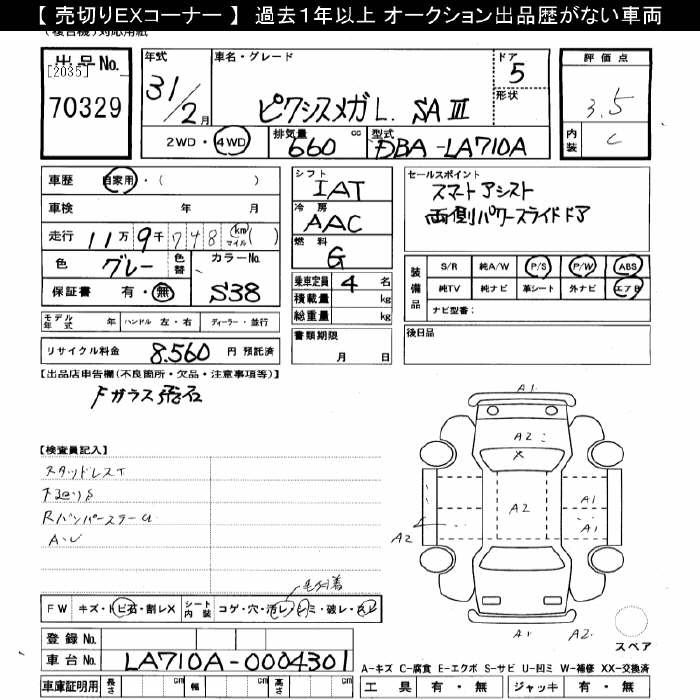 【 売切りEXコーナー 】 過去１年以上 オークション出品歴がない車両
(複合機)対応用紙
出品No.
[2035]
70329
年式
31/2月
車名・グレード
ピクシスメガ L. SAⅢ
ドア
5
形状
評価点
3.5
内装
C
2WD・4WD
排気量
660 cc
型式
DBA-LA710A
車歴 自家用・( )
車検 年 月
走行 11万9千748 km マイル ( )
色 グレー 色替
カラーNo.
S38
保証書 有・無
シフト
IAT
冷房
AAC
燃料
G
乗車定員 4 名
積載量 kg
総重量 kg
セールスポイント
スマートアシスト
両側パワースライドドア
装備品
S/R 純A/W P/S P/W ABS
純TV 純ナビ 革シート 外ナビ エアB
ナビ型番:
モデル年式 年 ハンドル 左・右 ディーラー・並行
リサイクル料金 8,560 円 預託済
書類期限
月 日
後日品
【出品店申告欄(不良箇所・欠品・注意事項等)】
Fガラス飛石
【検査員記入】
スタッドレスT
下回りS
Rバンパーステー
A・U
A1
A2
X
A2
A1
A1
A2
A1
A2
スペア
毛付着
FW キズ・トビ石・割レX シート内装 コゲ・穴・汚レ・シミ・破レ・スレ
登録No.
車台No. LA710A-0004301
車庫証明用 長さ cm 幅 cm 高さ cm
A-キズ C-腐食 E-エクボ S-サビ U-凹ミ W-補修 XX-交換済
工具 有・無 ジャッキ 有・無